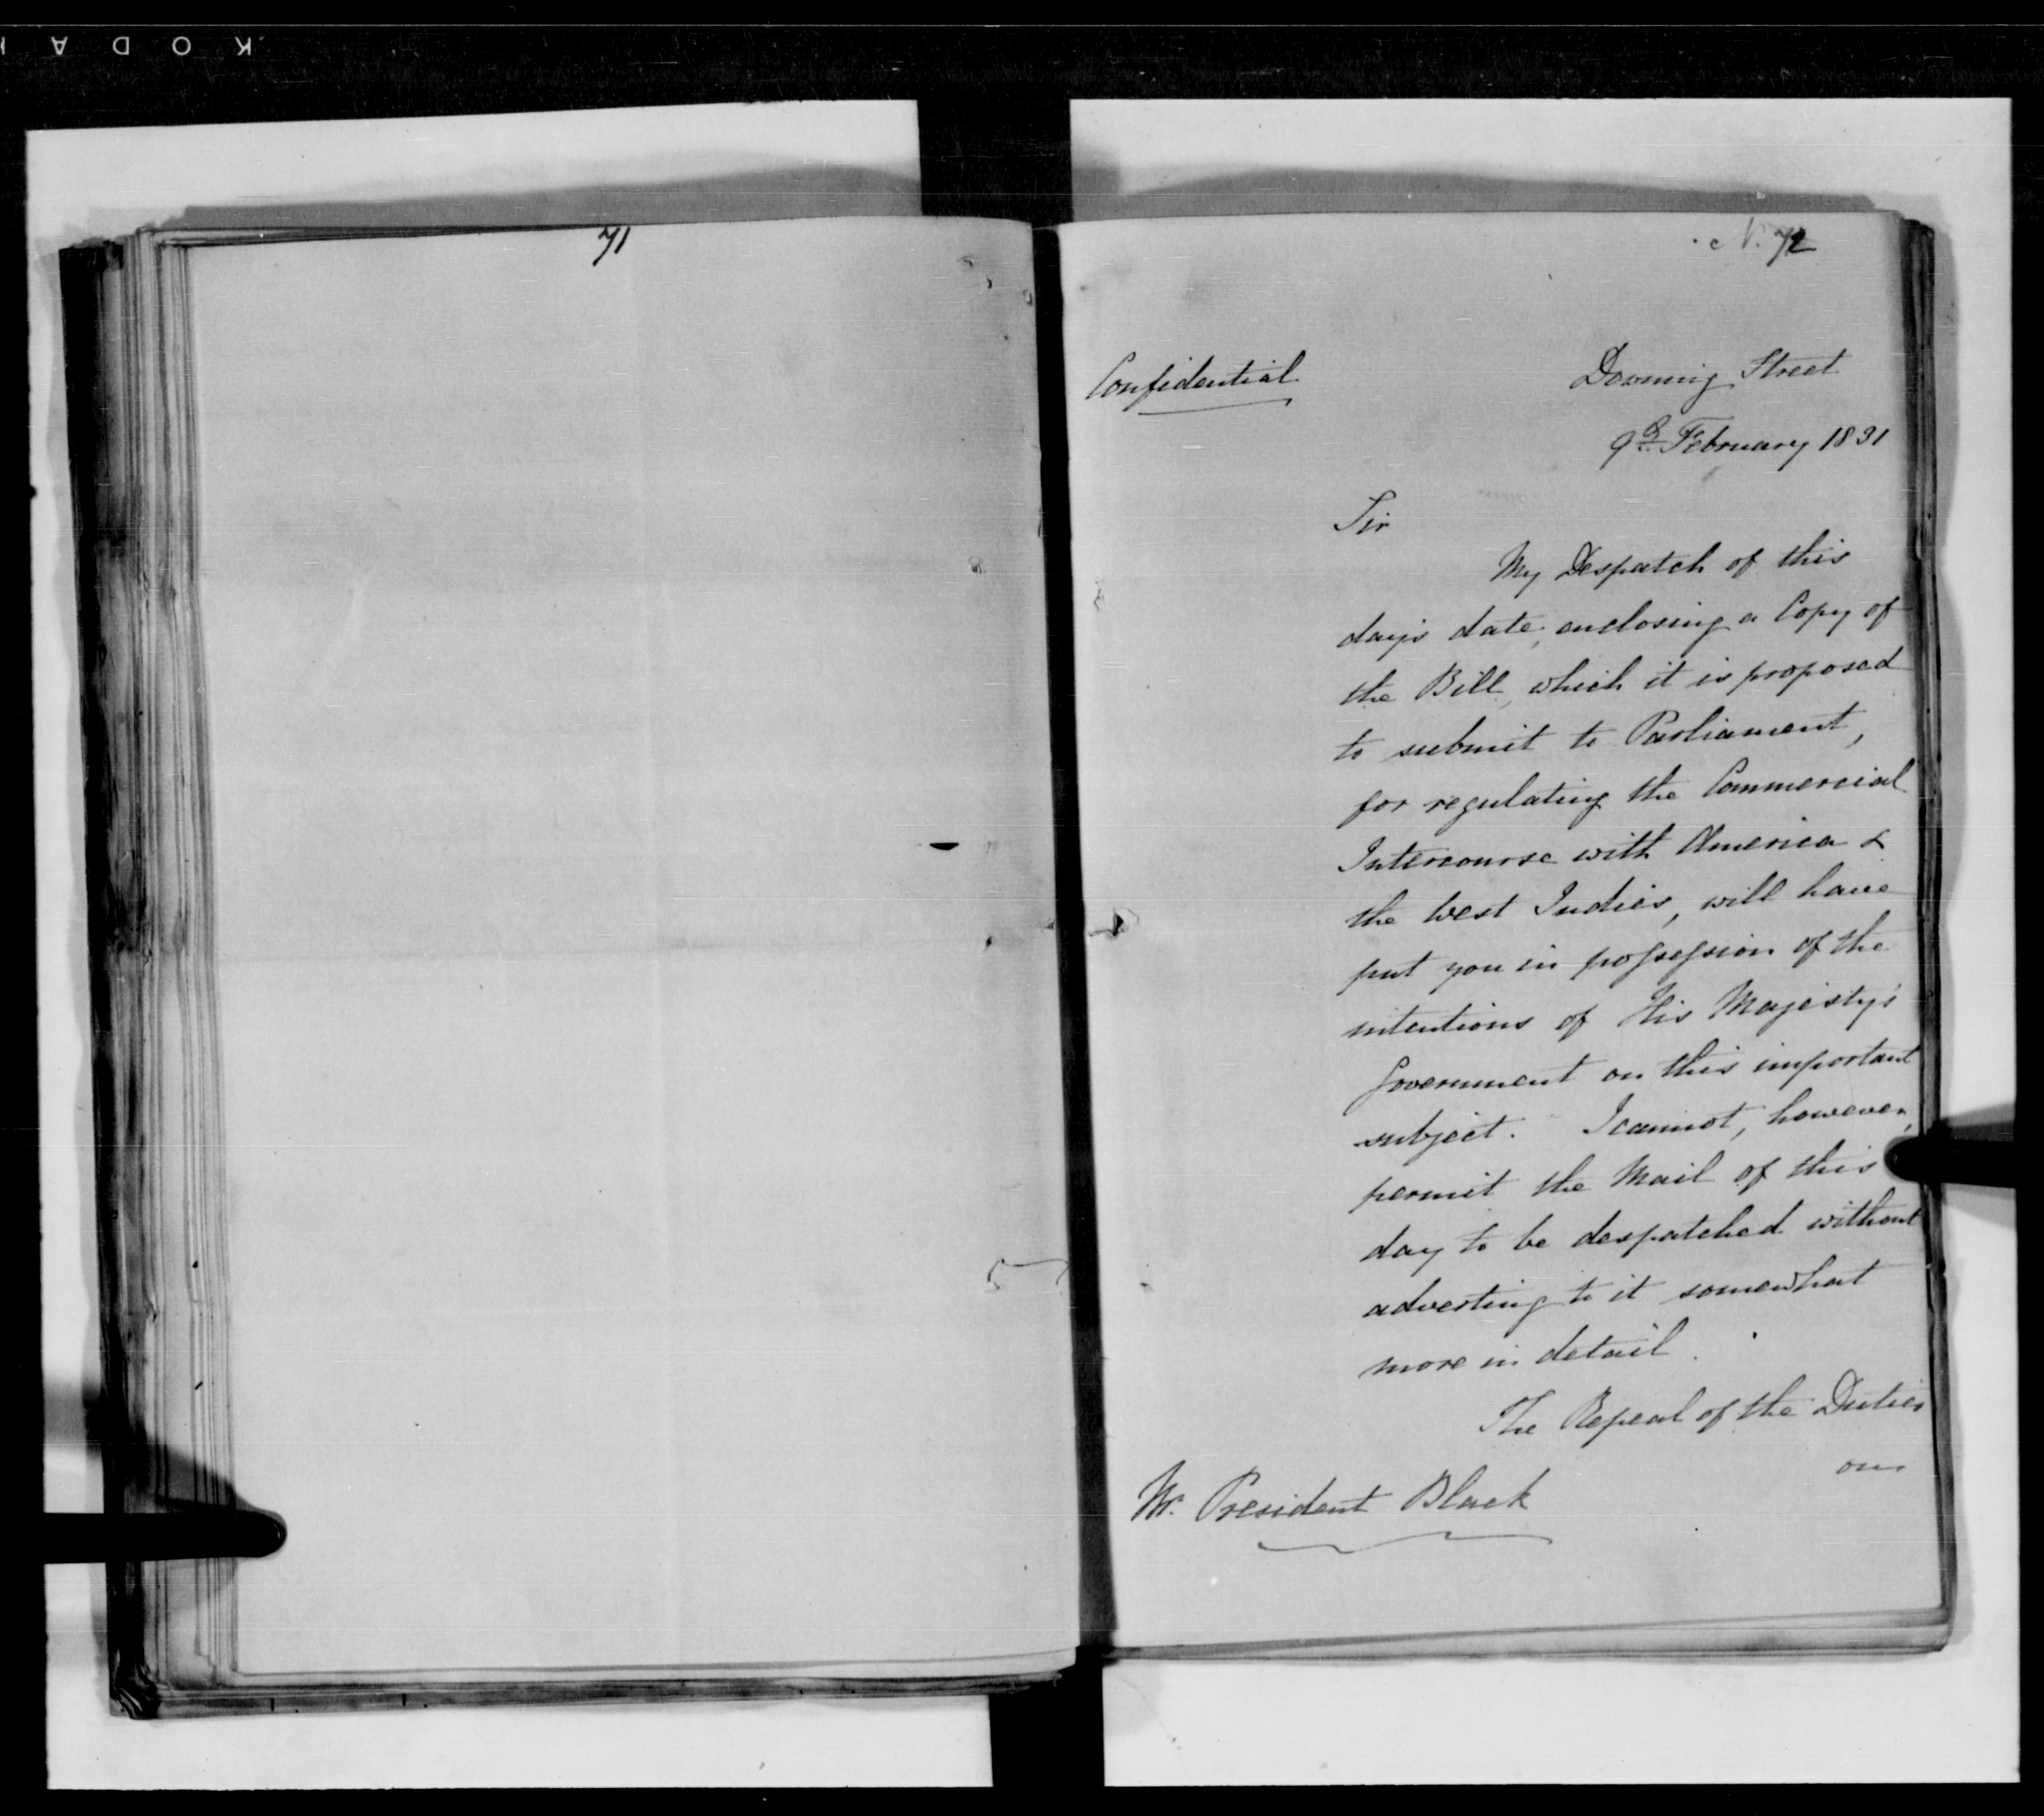 KODA
71
N. 72
Confidential
Downing Street
9th February 1831
Sir
My Despatch of this
day's date, enclosing a Copy of
the Bill, which it is proposed
to submit to Parliament,
for regulating the Commercial
Intercourse with America &
the West Indies, will have
put you in possession of the
intentions of His Majesty's
Government on this important
subject. I cannot, however,
permit the Mail of this
day to be despatched without
adverting to it somewhat
more in detail.
The Repeal of the Duties
on
Mr. President Black